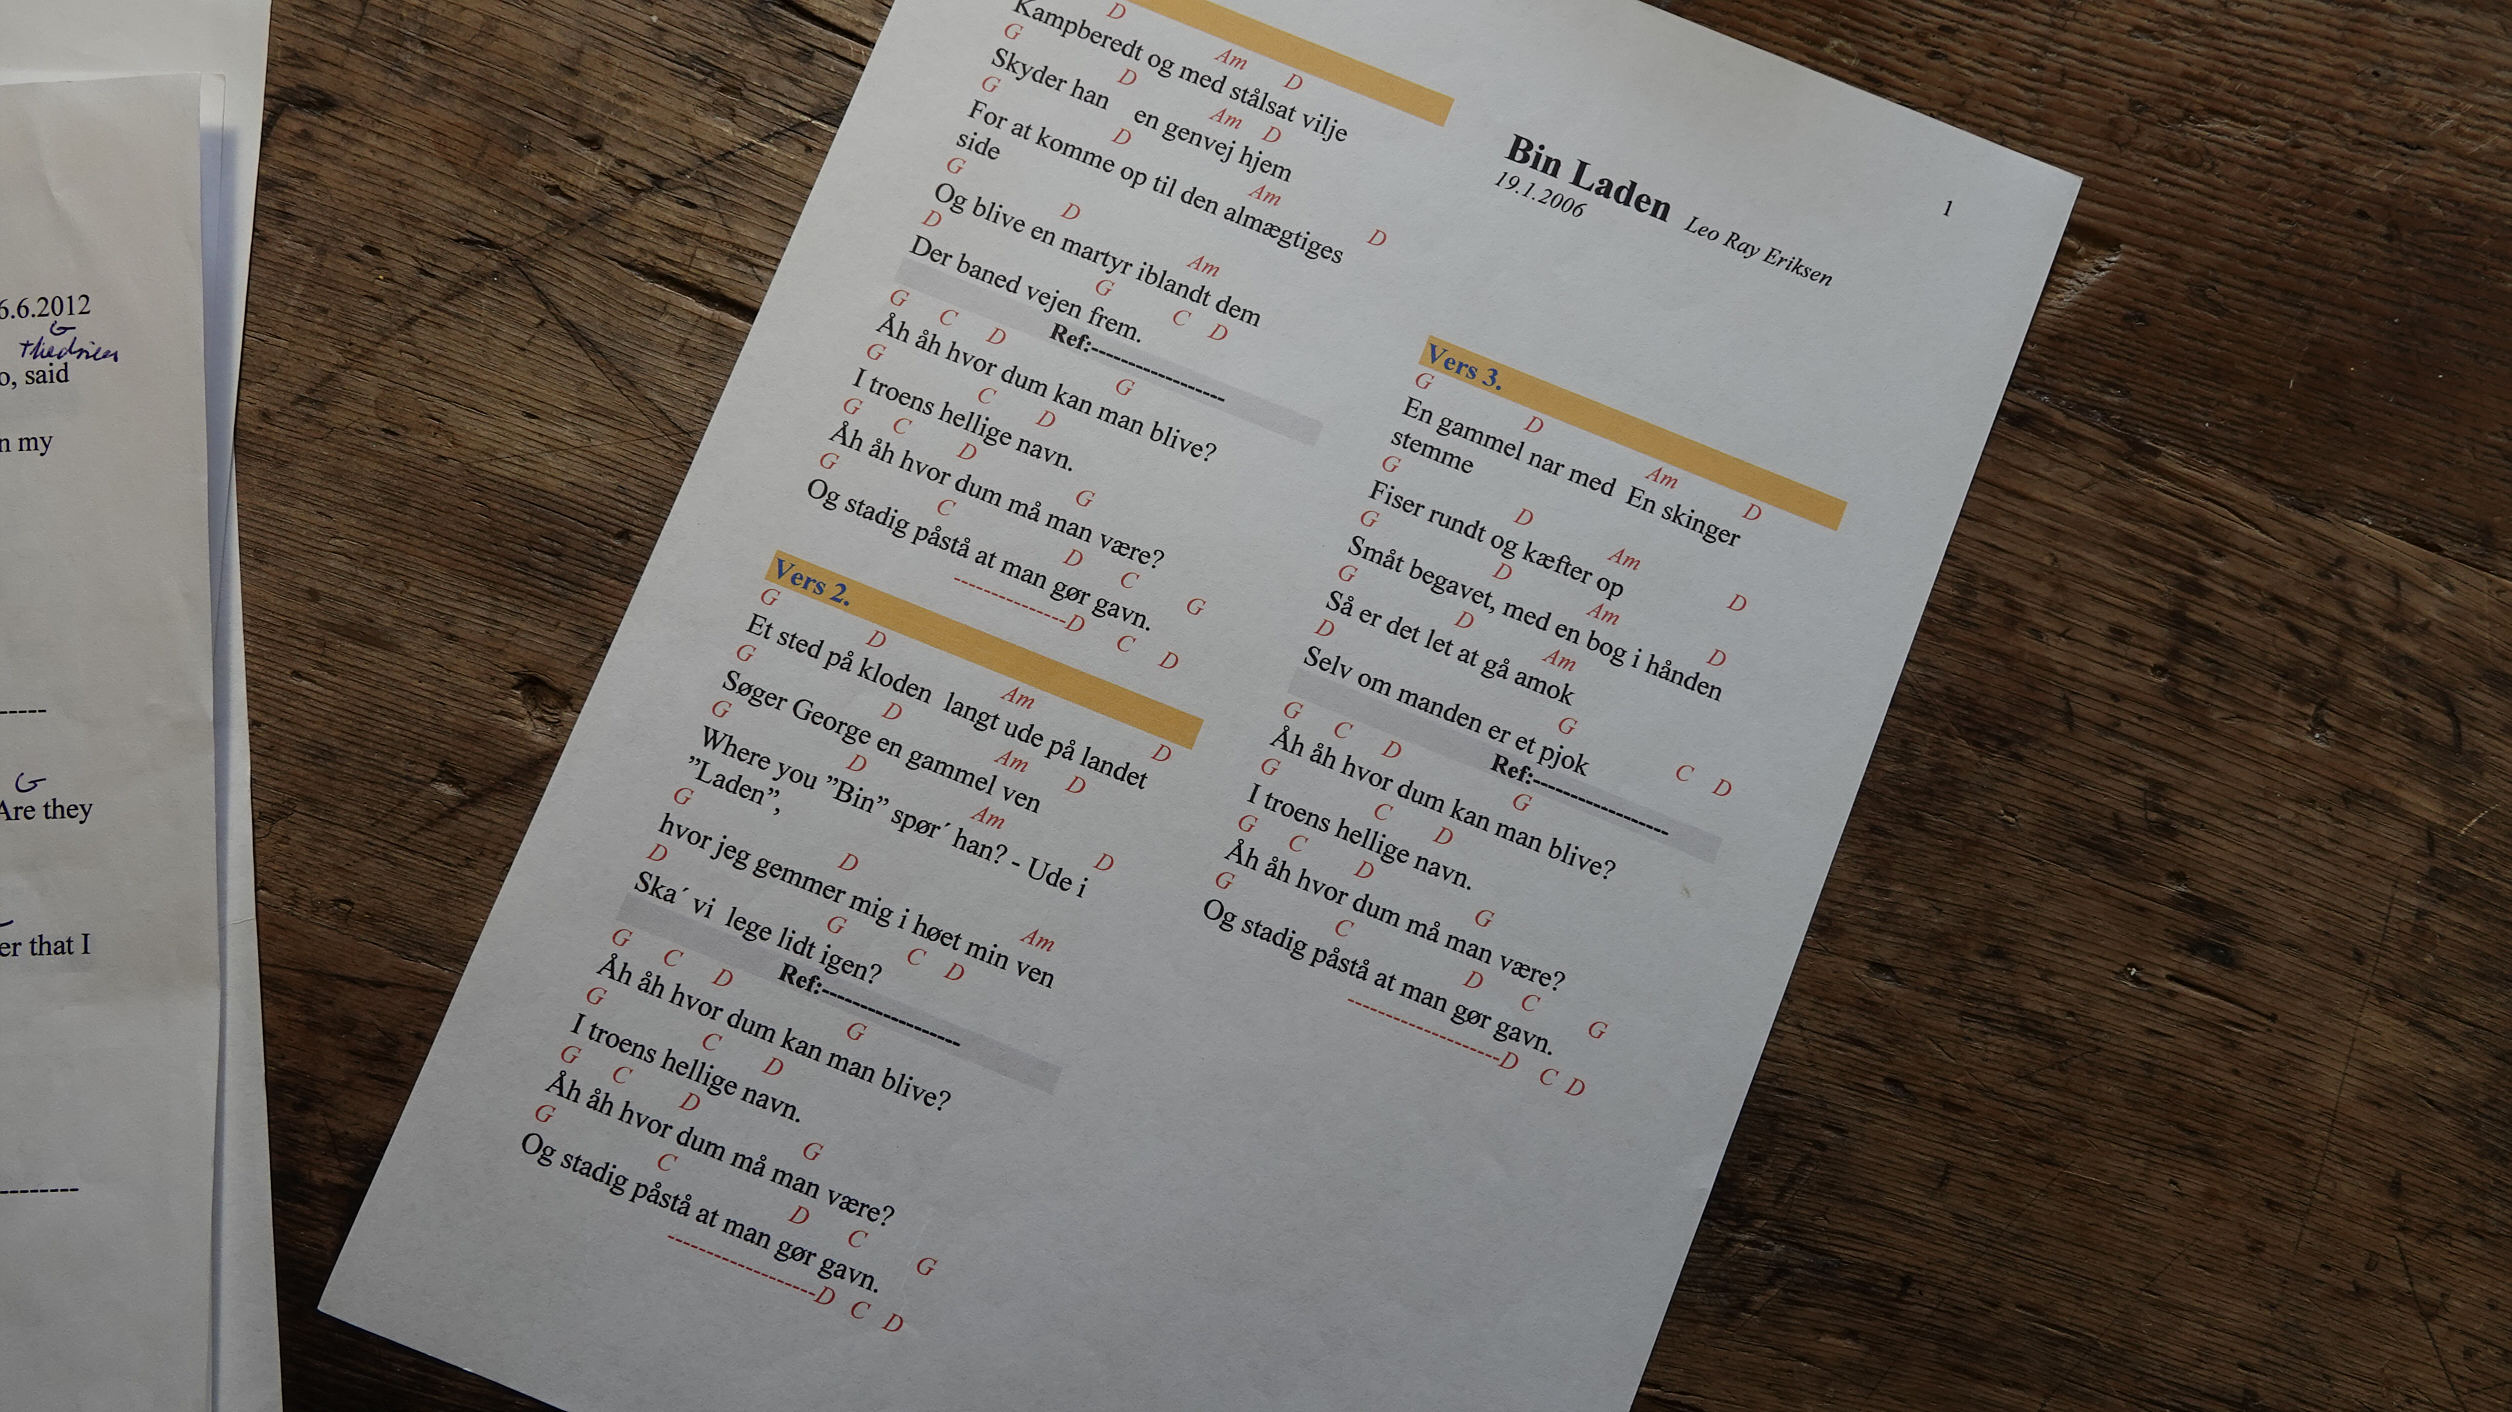 6.6.2012
G
o, said
n my
-----
G
Are they
er that I
---------
Bin Laden Leo Ray Eriksen 1
19.1.2006
D
Kampberedt og med stålsat vilje
G D Am D
Skyder han en genvej hjem
G D Am D
For at komme op til den almægtiges
side
G D Am D
Og blive en martyr iblandt dem
D G Am
Der baned vejen frem. C D
Ref:-------------------
G C D G
Åh åh hvor dum kan man blive?
G C D
I troens hellige navn.
G C D G
Åh åh hvor dum må man være?
G C D C G
Og stadig påstå at man gør gavn.
---------------D C D
Vers 2.
G D Am D
Et sted på kloden langt ude på landet
G D Am D
Søger George en gammel ven
G D Am D
Where you ”Bin” spør´ han? - Ude i
”Laden”,
G D Am
hvor jeg gemmer mig i høet min ven
D G C D
Ska´ vi lege lidt igen?
Ref:-------------------
G C D G
Åh åh hvor dum kan man blive?
G C D
I troens hellige navn.
G C D G
Åh åh hvor dum må man være?
G C D C G
Og stadig påstå at man gør gavn.
--------------------D C D
Vers 3.
G D Am D
En gammel nar med En skinger
stemme
G D Am D
Fiser rundt og kæfter op
G D Am D
Småt begavet, med en bog i hånden
G D Am
Så er det let at gå amok
D G C D
Selv om manden er et pjok
Ref:-------------------
G C D G
Åh åh hvor dum kan man blive?
G C D
I troens hellige navn.
G C D G
Åh åh hvor dum må man være?
G C D C G
Og stadig påstå at man gør gavn.
--------------------D C D